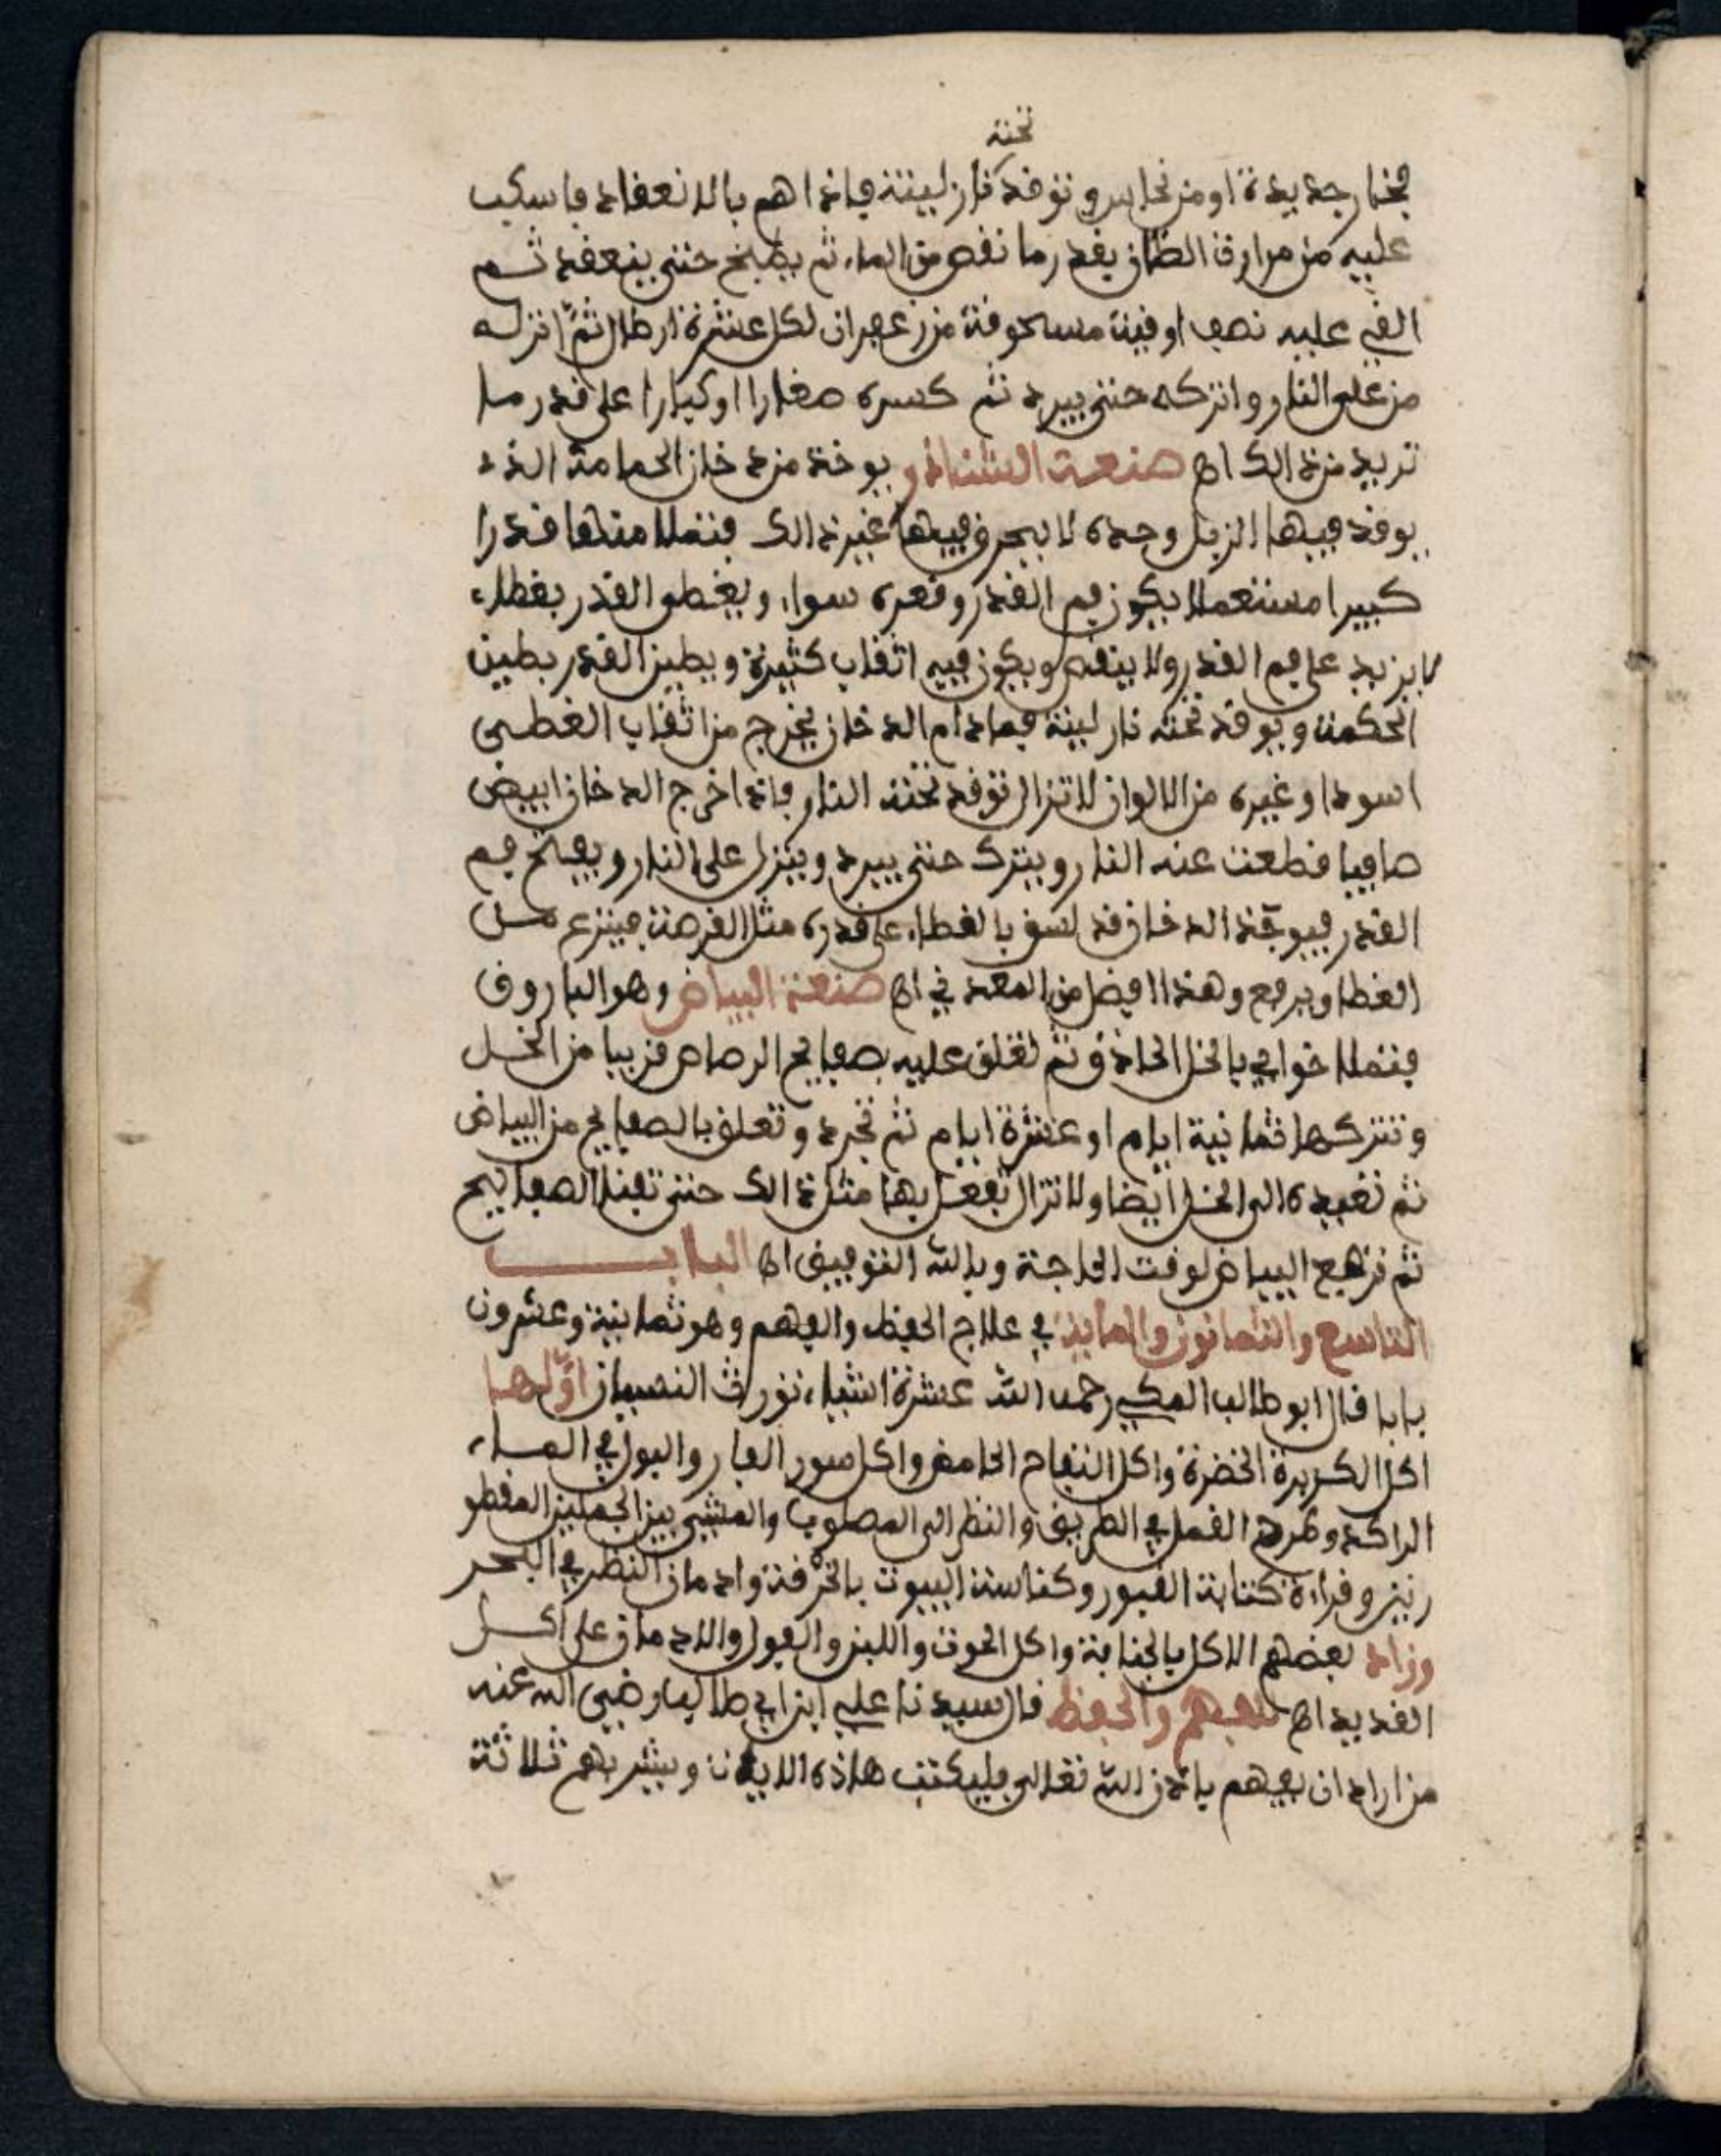 تحته
فخار جديدة او من نحاس وتوقد نار لينة فاذا هم بالانعقاد فاسكب
عليه من مرارة الضان بقدر ما نقص من الماء ثم يطبخ حتى ينعقد ثم
القي عليه نصف اوقية مسحوقة من زعفران لكل عشرة ارطال ثم انزله
من على النار واتركه حتى يبرد ثم كسره صغارا او كبارا على قدر ما
تريد من ذالك اه صنعة النشاذر يوخذ من دخان الحمامة الذي
يوقد فيها الزبل وحده لا يحرق فيها غير ذالك فتملا منها قدرا
كبيرا مستعملا يكون فم القدر وقعره سواء ويغطى القدر بغطاء
لا يزيد على فم القدر ولا ينقص ويكون فيه اثقاب كثيرة ويطين القدر بطين
الحكمة ويوقد تحته نار لينة فمادام الدخان يخرج من اثقاب الغطى
اسود او غيره من الالوان لا تزال توقد تحته النار فاذا خرج الدخان ابيض
صافيا قطعت عنه النار ويترك حتى يبرد وينزل على النار ويفتح فم
القدر فيوجد الدخان قد لسق بالغطاء على قدره مثل القرصة فينزع من
الغطا ويرفع وهذا افضل من المعدني اه صنعة البياض وهو الباروق
فتملا خوابي بالخل الحاذق ثم تعلق عليه صفايح الرصاص قريبا من الخل
وتتركها ثمانية ايام او عشرة ايام ثم تجرد وتعلق بالصفايح من البياض
ثم تعيده الى الخل ايضا ولا تزال تفعل بها مثل ذالك حتى تفنا الصفايح
ثم ترفع البياض لوقت الحاجة وبالله التوفيق اه البـاب
التاسع والثمانون والماية في علاج الحفظ والفهم وهو ثمانية وعشرون
بابا قال ابو طالب المكي رحمه الله عشرة اشياء تورث النسيان اولها
اكل الكزبرة الخضرة واكل التفاح الحامض واكل سور الفار والبول في الماء
الراكد وطرح القمل في الطريق والنظر الى المصلوب والمشي بين الجملين المقطو
رين وقراءة كتابة القبور وكناسة البيوت بالخرقة وادمان النظر في البحر
وزاد بعضهم الاكل بالجنابة واكل الحوت واللبن والفول والادمان على اكل
القديد اه للفهم والحفظ قال سيدنا علي ابن ابي طالب رضي الله عنه
من اراد ان يفهم باذن الله تعالى فليكتب هاذه الايات ويشربهم ثلاثة